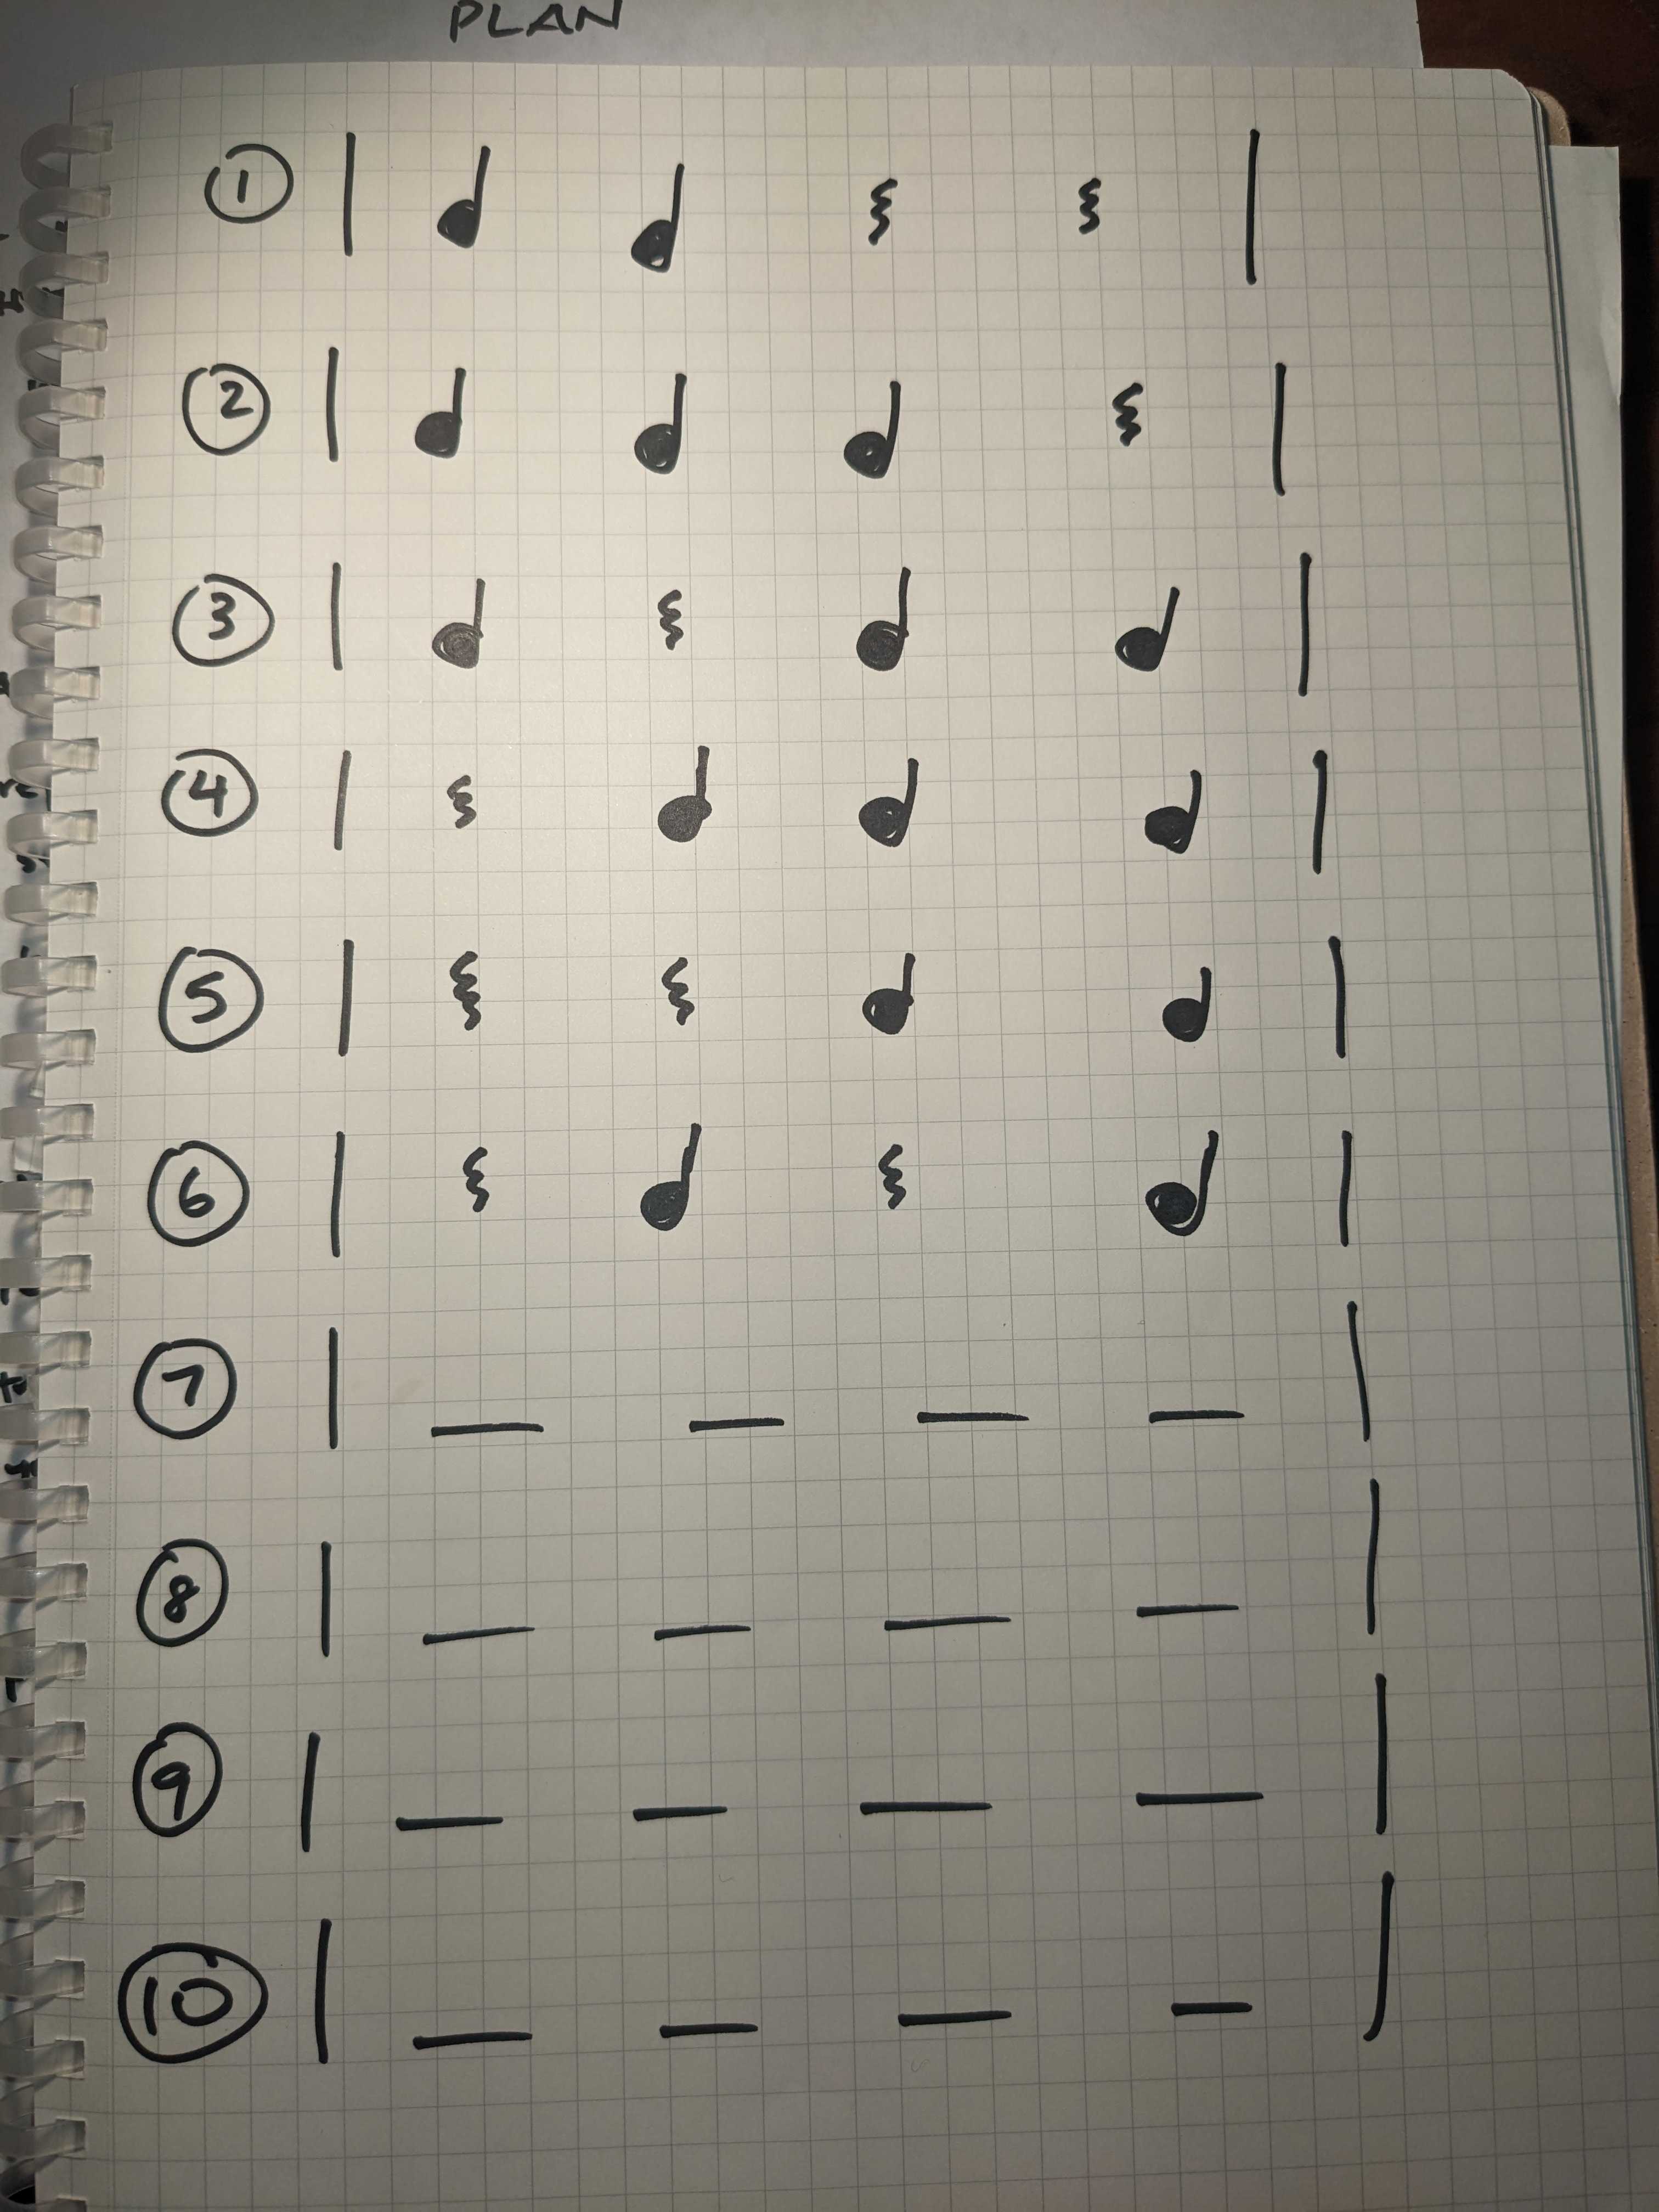 PLAN
1
2
3
4
5
6
7
8
9
10